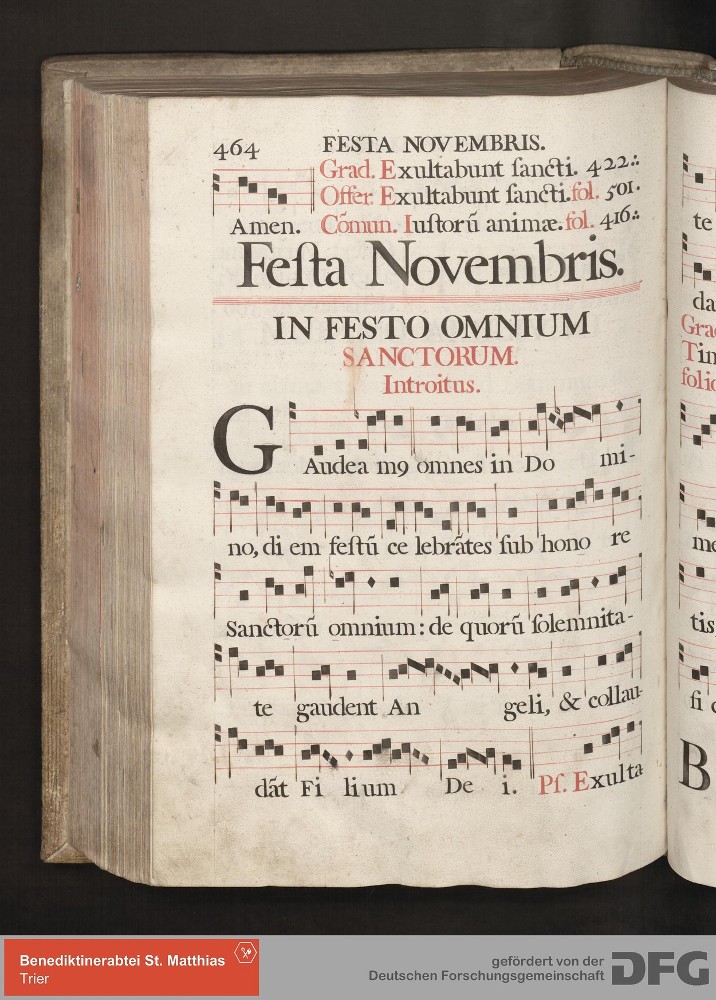 464 FESTA NOVEMBRIS.
Grad. Exultabunt ſancti. 422.:
Offer. Exultabunt ſancti. fol. 501.
Amen. Cōmun. Iuſtorū animæ. fol. 416.:
Feſta Novembris.
IN FESTO OMNIUM
SANCTORUM.
Introitus.
GAudea m9 omnes in Do mi-
no, di em feſtū ce lebrātes ſub hono re
Sanctorū omnium: de quorū ſolemnita-
te gaudent An geli, & collau-
dāt Fi lium De i. Pſ. Exulta
te
da
Grad
Tim
folio
me
tis
fi c
B
Benediktinerabtei St. Matthias
Trier
gefördert von der
Deutschen Forschungsgemeinschaft
DFG